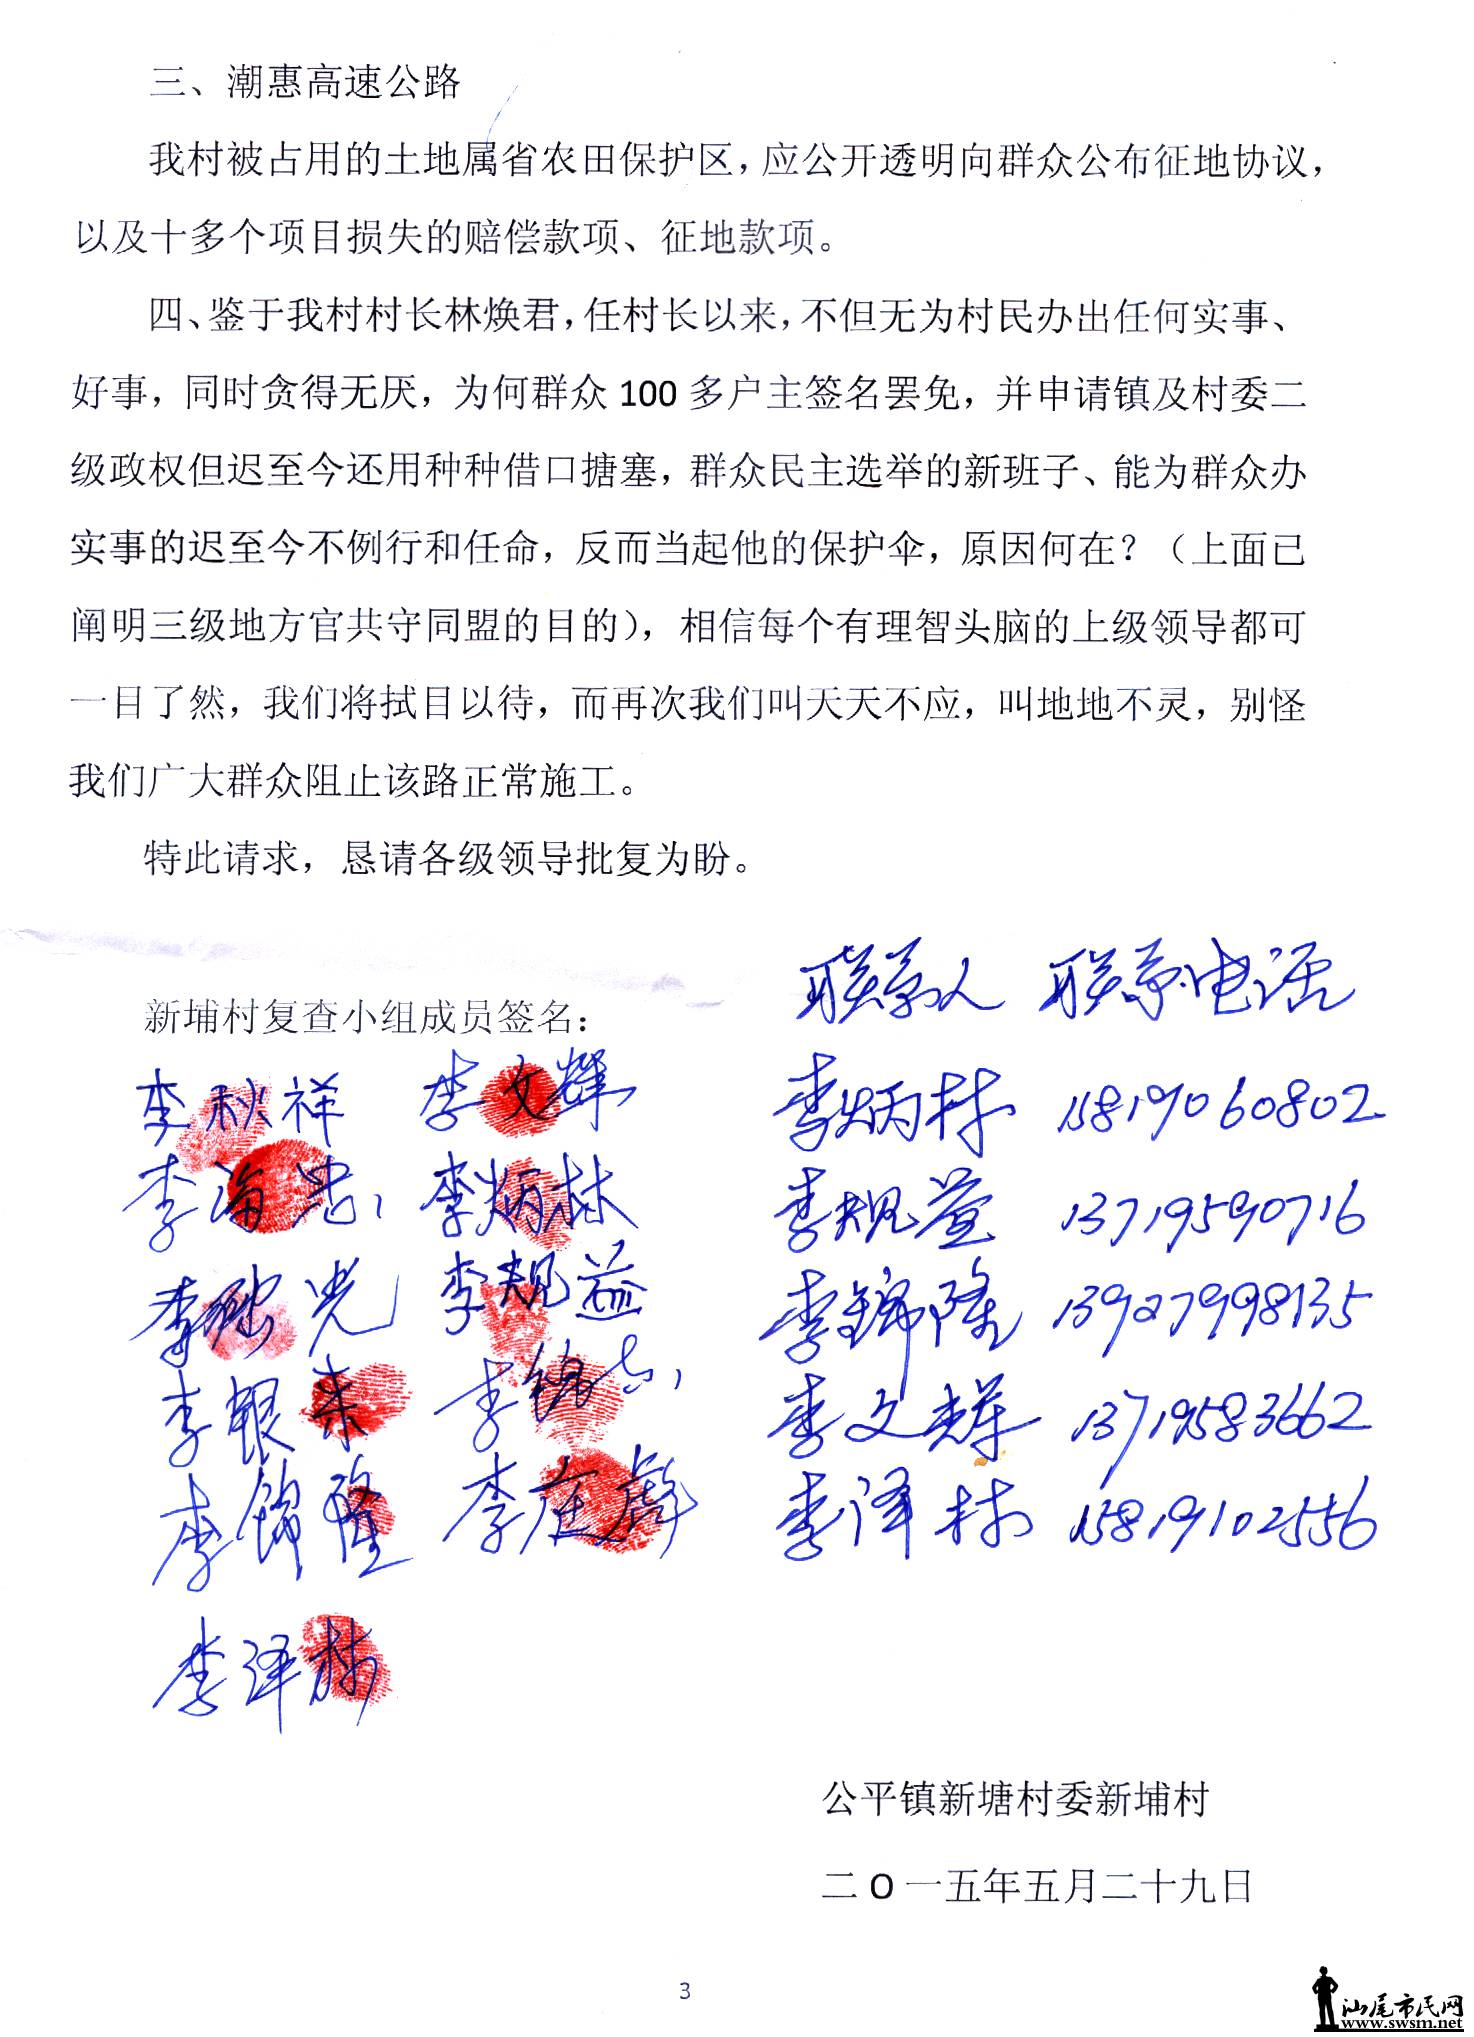 三、潮惠高速公路
我村被占用的土地属省农田保护区，应公开透明向群众公布征地协议，
以及十多个项目损失的赔偿款项、征地款项。
四、鉴于我村村长林焕君，任村长以来，不但无为村民办出任何实事、
好事，同时贪得无厌，为何群众 100 多户主签名罢免，并申请镇及村委二
级政权但迟至今还用种种借口搪塞，群众民主选举的新班子、能为群众办
实事的迟至今不例行和任命，反而当起他的保护伞，原因何在？（上面已
阐明三级地方官共守同盟的目的），相信每个有理智头脑的上级领导都可
一目了然，我们将拭目以待，而再次我们叫天天不应，叫地地不灵，别怪
我们广大群众阻止该路正常施工。
特此请求，恳请各级领导批复为盼。
联系人 联系电话
新埔村复查小组成员签名：
李秋祥 李文辉
李海忠 李炳林
李 光 李规益
李银来 李锦
李锦隆 李庭
李泽林
李炳林 15819060802
李规益 13719590716
李锦隆 13927998135
李文辉 13719583662
李泽林 15819102556
公平镇新塘村委新埔村
二 O 一五年五月二十九日
3
汕尾市民网
www.swsm.net